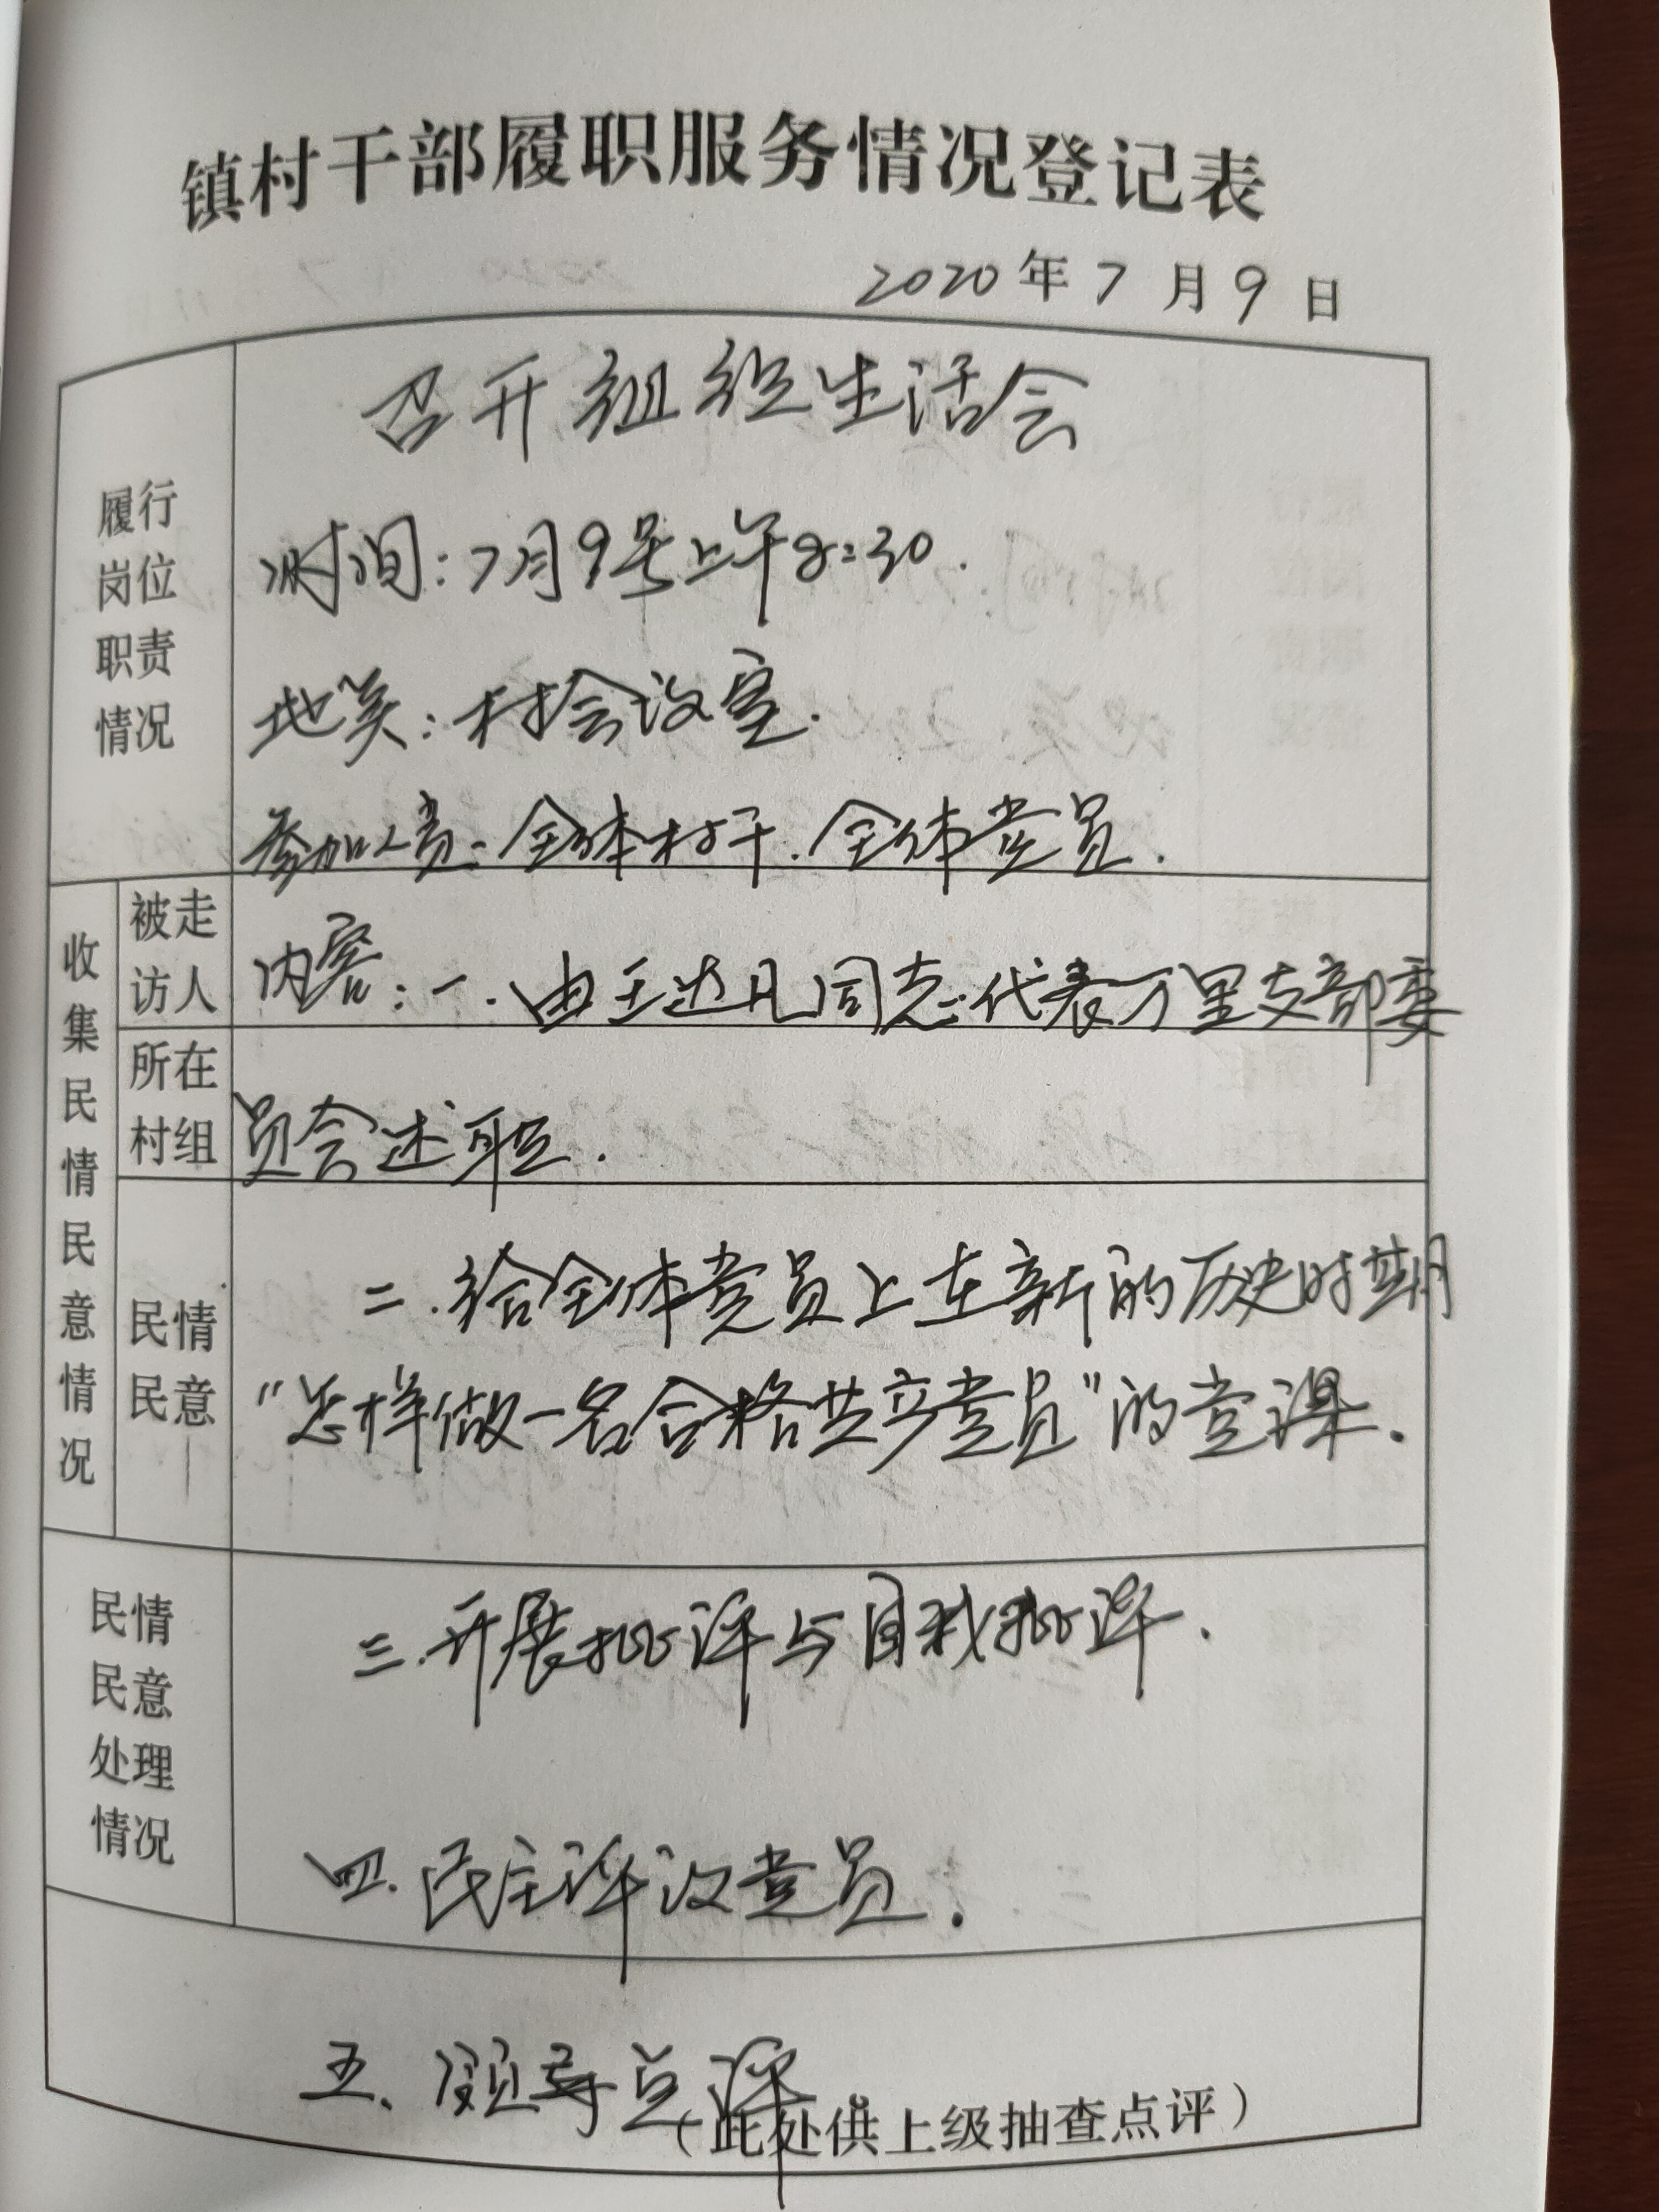 镇村干部履职服务情况登记表
2020年7月9日
召开组织生活会
履行
岗位
职责
情况
时间:7月9号上午8:30.
地点:村会议室.
参加人员:全体村干.全体党员.
收集民情民意情况
被走
访人
内容:一.由王达凡同志代表万里支部委
所在
村组
员会述职.
民情
民意
二.给全体党员上在新的历史时期
“怎样做一名合格共产党员”的党课.
民情
民意
处理
情况
三.开展批评与自我批评.
四.民主评议党员.
五、领导点评
(此处供上级抽查点评)